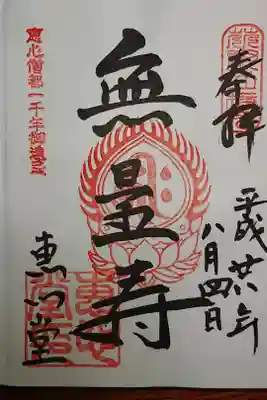 奉拝
平成廿八年
八月四日
無量寿
恵心僧都一千年御遠忌
恵心堂